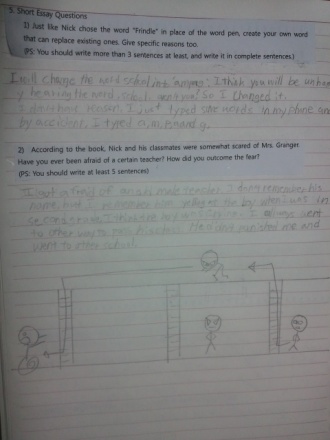 5. Short Essay Questions
1) Just like Nick chose the word "Frindle" in place of the word pen, create your own word
that can replace existing ones. Give specific reasons too.
(PS: You should write more than 3 sentences at least, and write it in complete sentences.)
I will change the word school into I think you will be
hearing the word school, aren't you? So I changed it.
I don't have reason. I just typed some words in my phone and
by accident, I typed
2) According to the book, Nick and his classmates were somewhat scared of Mrs. Granger.
Have you ever been afraid of a certain teacher? How did you outcome the fear?
(PS: You should write at least 5 sentences)
I got afraid of teacher. I don't remember his
name, but I remember him yelling at the boy when I was in
second grade. I think the boy I always went
to other way to He didn't punished me and
went to other school.